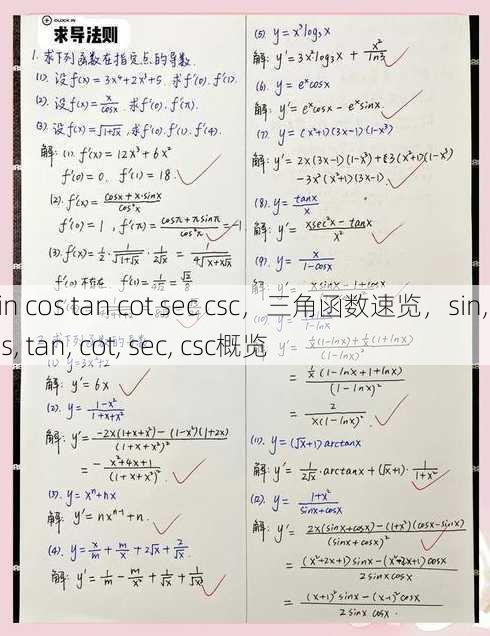 CLOCK IN
求导法则
1. 求下列函数在指定点的导数.
(1). 设f(x) = 3x⁴+2x³+5. 求f'(0). f'(1).
(2). 设f(x) = x/cosx. 求f'(0). f'(π).
(3). 设f(x) = √(1+√x), 求f'(0). f'(1). f'(4).
解: (1). f'(x) = 12x³ + 6x²
f'(0) = 0. f'(1) = 18.
(2). f'(x) = (cosx + x·sinx)/cos²x
f'(0) = 1, f'(π) = (cosπ + πsinπ)/cos²π = -1
(3). f'(x) = 1/2 · 1/√(1+√x) · 1/(2√x) = 1/(4√(x+x√x))
f'(0) 不存在. f'(1) = = √2/8
in cos tan cot sec csc，三角函数速览，sin,
s, tan, cot, sec, csc概览
(1) y=3x²+2
y' = 6x
(2). y = (1-x²)/(1+x+x²)
解: y' = (-2x(1+x+x²) - (1-x²)(1+2x))/(1+x+x²)²
= - (x²+4x+1)/(1+x+x²)².
(3). y = xⁿ+nx
解: y' = nxⁿ⁻¹ + n.
(4). y = x/m + m/x + 2√x + 2/√x.
解: y' = 1/m - m/x² + 1/√x + 1/√x³
(5) y = x³log₃x
解: y' = 3x²log₃x + x²/ln3
(6). y = eˣcosx
解: y' = eˣcosx - eˣsinx.
(7) y = (x²+1)(3x-1)(1-x³)
解: y' = 2x(3x-1)(1-x³) + 3(x²+1)(1-x³)
-3x²(x²+1)(3x-1).
(8). y = tanx/x
解: y' = (xsec²x - tanx)/x²
(9). y = x/(1-cosx)
xsinx - 1+cosx
1/x(1-lnx) + 1/x(1+lnx)
(1-lnx)²
= 1/x(1-lnx+1+lnx)/(1-lnx)²
= 2/(x(1-lnx)²).
(11). y = (√x+1)arctanx
解: y' = 1/(2√x)·arctanx + (√x+1)·1/(1+x²)
(12). y = (1+x²)/(sinx+cosx)
解: y' = (2x(sinx+cosx) - (1+x²)(cosx-sinx))/(sinx+cosx)²
= ((x²+2x+1)sinx - (x²-2x+1)cosx)/(2sinxcosx)
= ((x+1)²sinx - (x-1)²cosx)/(2sinxcosx).